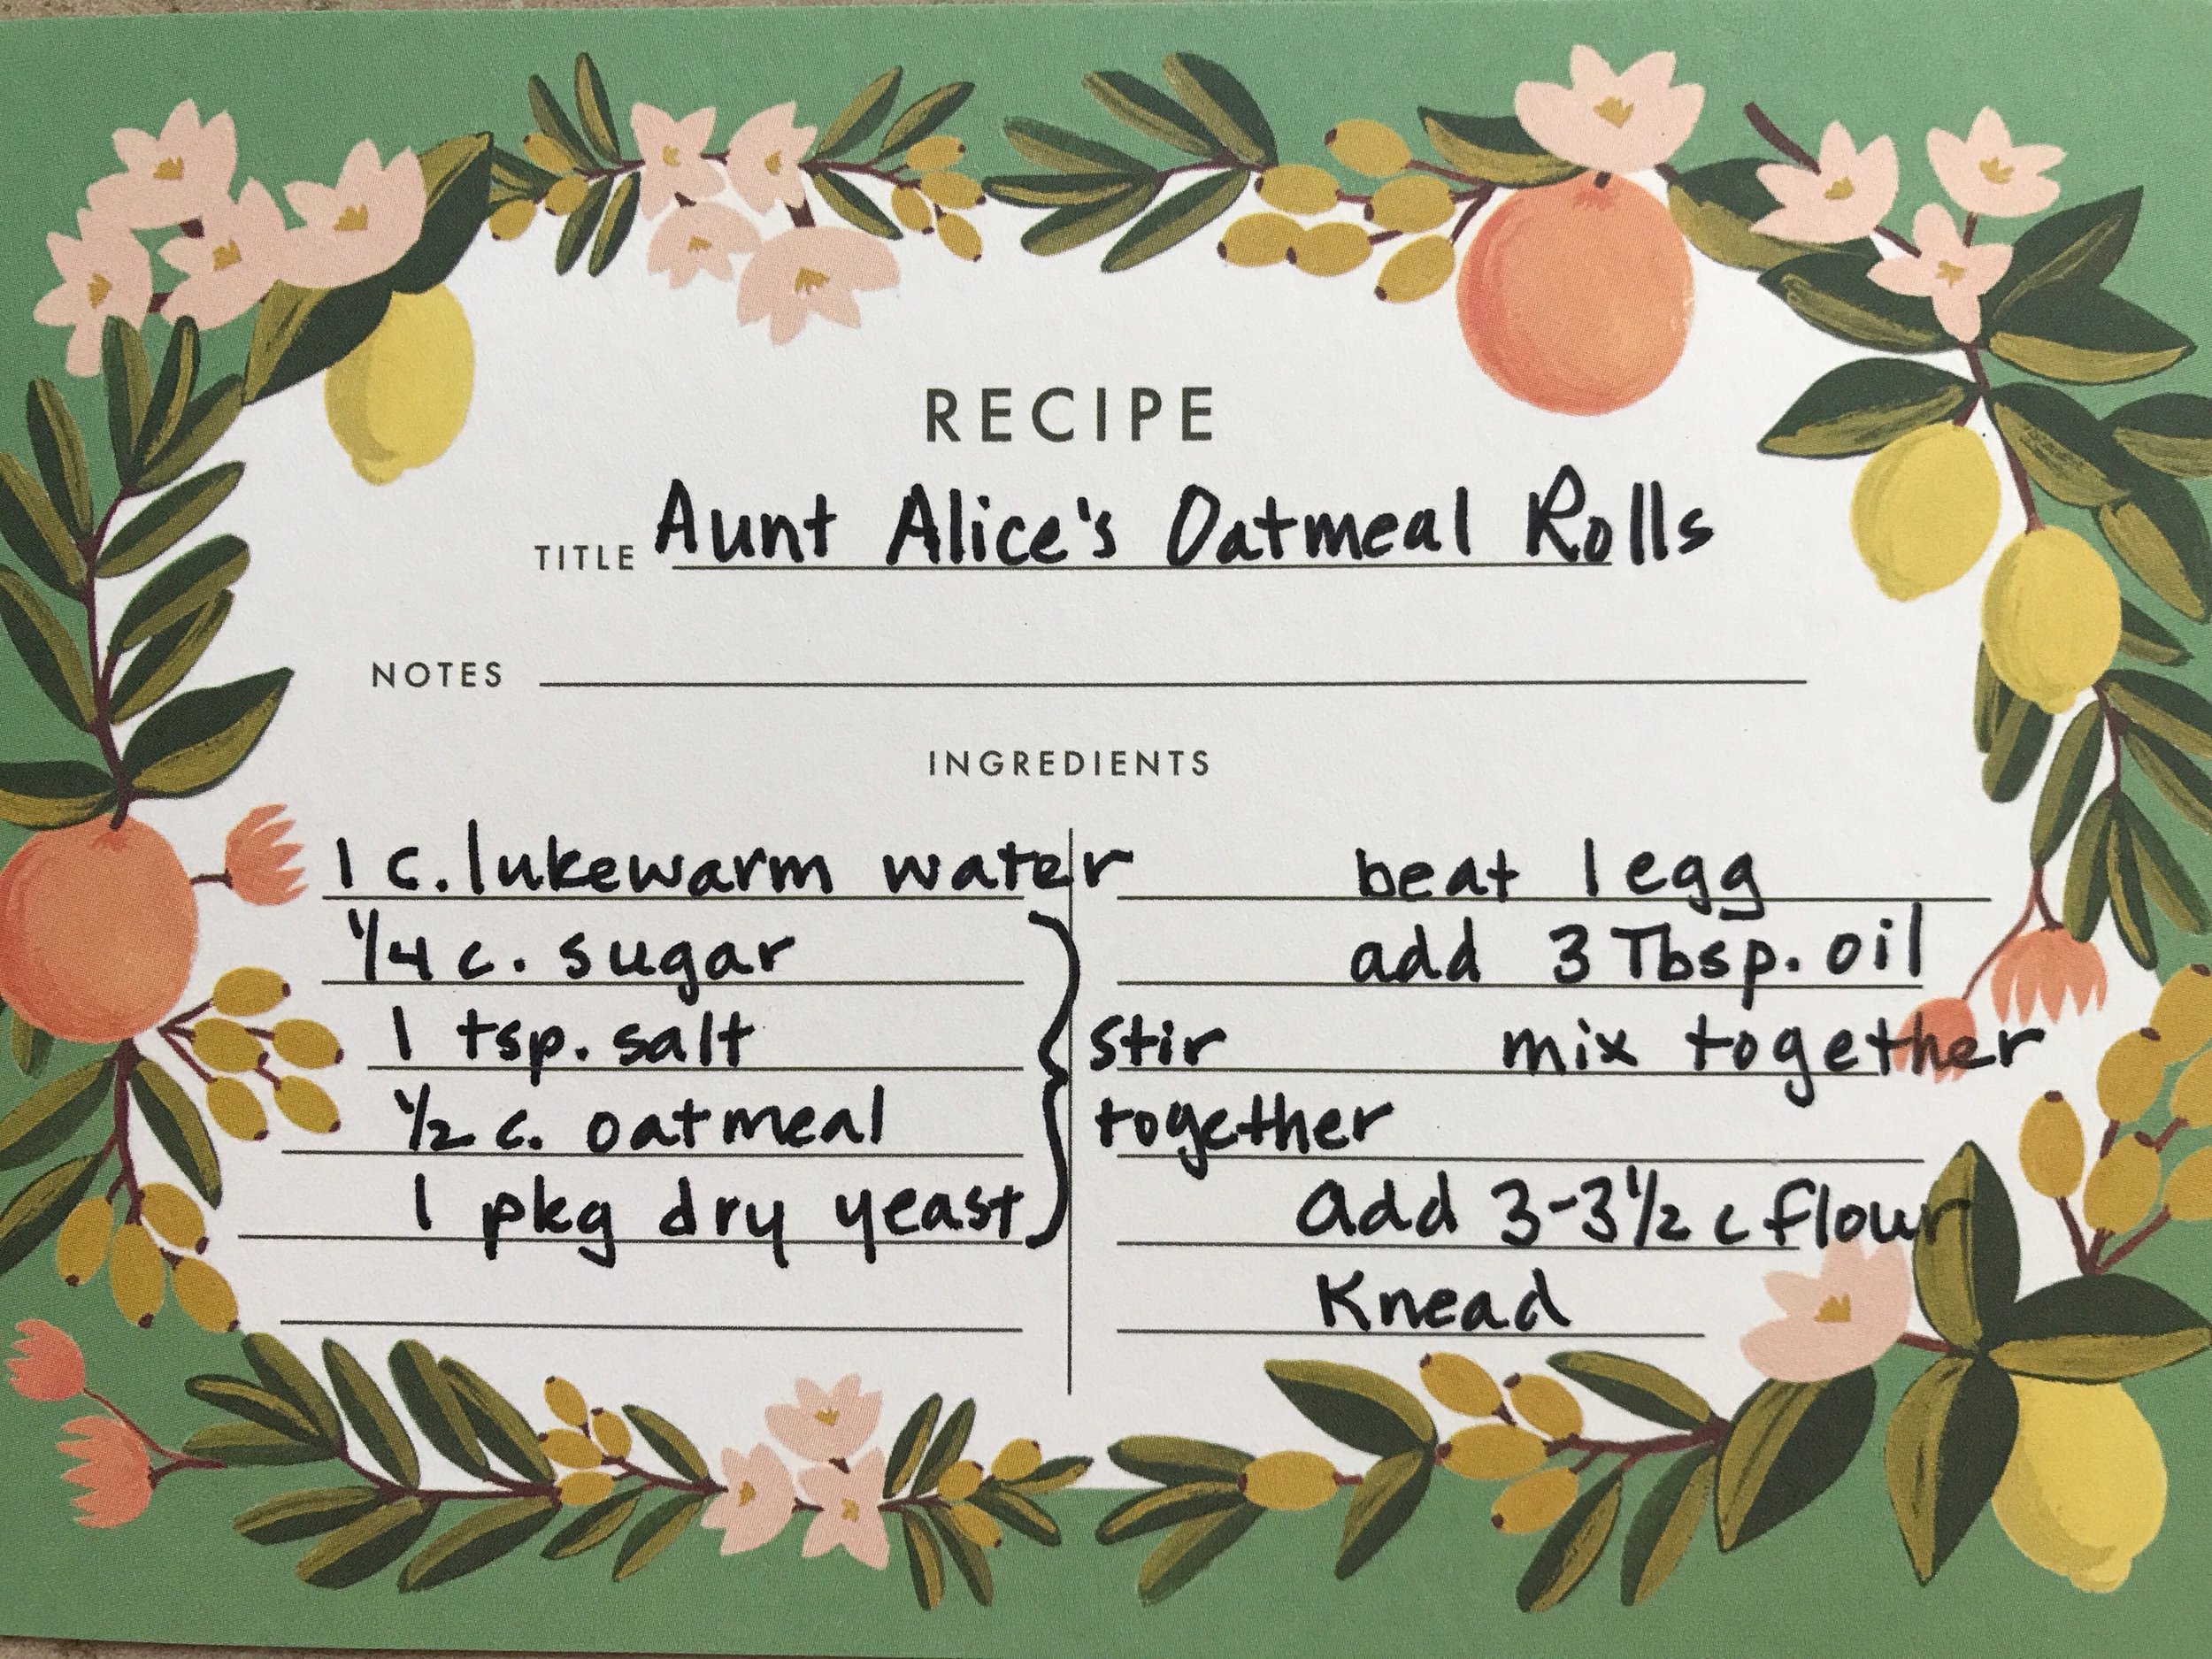 RECIPE
TITLE Aunt Alice's Oatmeal Rolls
NOTES
INGREDIENTS
1 c. lukewarm water
1/4 c. sugar
1 tsp. salt
1/2 c. oatmeal
1 pkg dry yeast
stir
together
beat 1 egg
add 3 Tbsp. oil
mix together
add 3-3 1/2 c flour
Knead